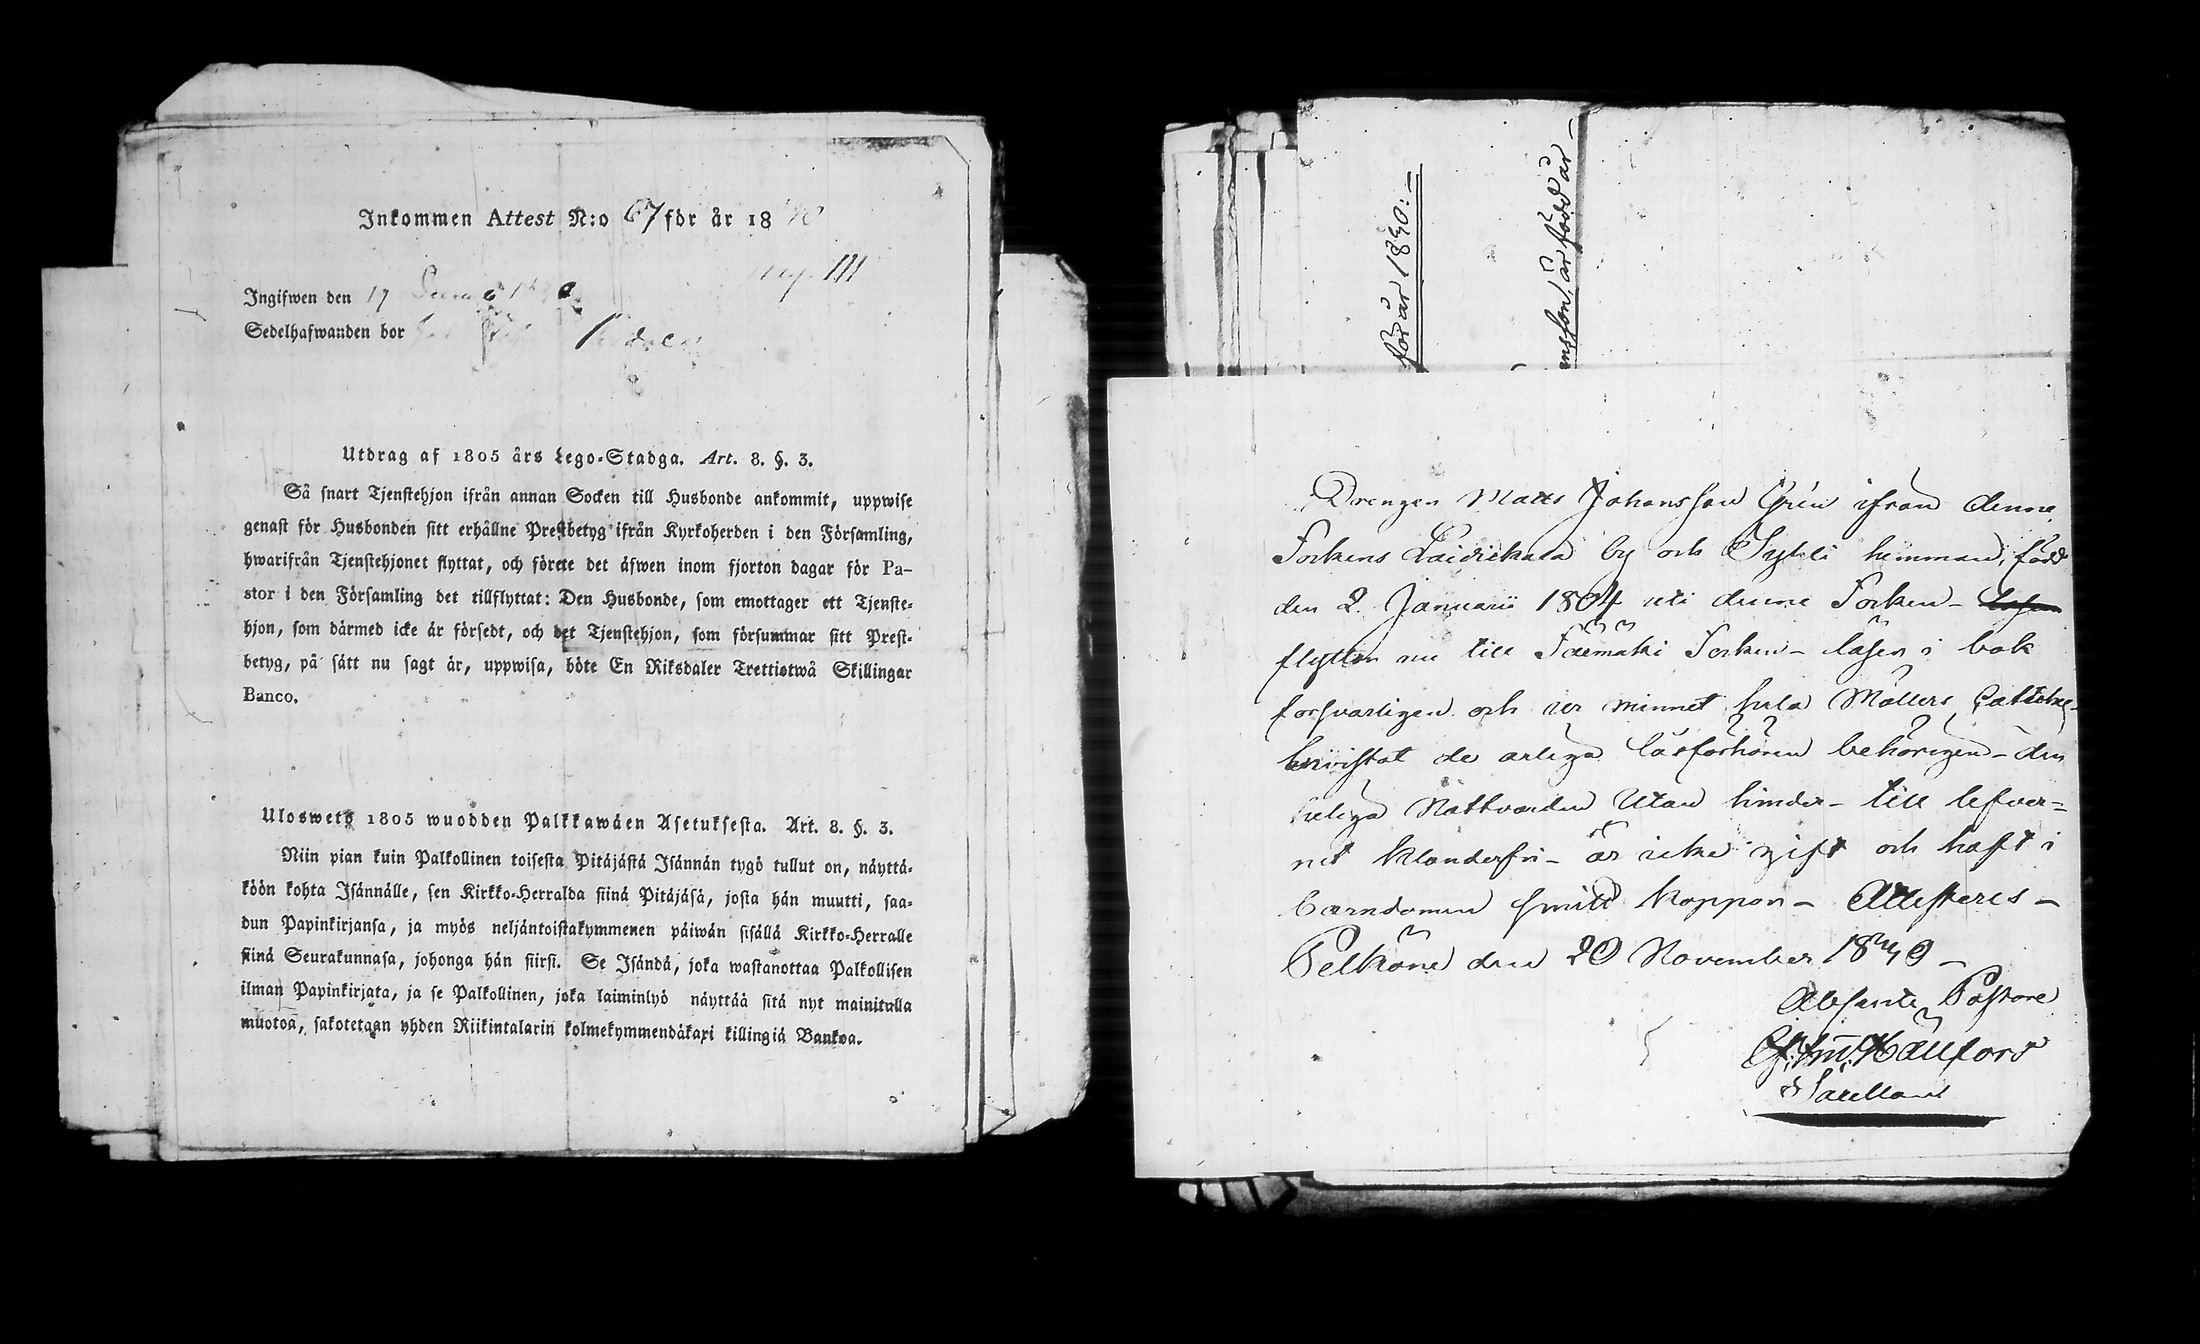 Inkommen Attest N:o 67 för år 18
III
Ingifwen den 17
Sedelhafwanden bor
Utdrag af 1805 års Lego-Stadga. Art. 8. §. 3.
Så snart Tjenstehjon ifrån annan Socken till Husbonde ankommit, uppwise
genast för Husbonden sitt erhållne Prestbetyg ifrån Kyrkoherden i den Församling,
hwarifrån Tjenstehjonet flyttat, och förete det äfwen inom fjorton dagar för Pa-
stor i den Församling det tillflyttat: Den Husbonde, som emottager ett Tjenste-
hjon, som därmed icke är försedt, och det Tjenstehjon, som försummar sitt Prest-
betyg, på sätt nu sagt är, uppwisa, böte En Riksdaler Trettiotwå Skillingar
Banco.
Ulosweto 1805 wuodden Palkkawäen Asetuksesta. Art. 8. §. 3.
Niin pian kuin Palkollinen toisesta Pitäjästä Isännän tygö tullut on, näyttä-
köön kohta Isännälle, sen Kirkko-Herralda siinä Pitäjäsä, josta hän muutti, saa-
dun Papinkirjansa, ja myös neljäntoistakymmenen päiwän sisällä Kirkko-Herralle
siinä Seurakunnasa, johonga hän siirsi. Se Isändä, joka wastanottaa Palkollisen
ilman Papinkirjata, ja se Palkollinen, joka laiminlyö näyttää sitä nyt mainitulla
muotoa, sakotetaan yhden Riikintalarin kolmekymmendäkaxi killingiä Bankoa.
för år 1840:-
nsson, är född år -
Drengen Matts Johansson Grén ifrån denne
Sockens Laidickala by och hemman, född
den 2 Januarii 1804 uti denne Socken -
flyttar nu till Säämäki Socken - läser i bok
försvarligen och ur minnet hela Möllers Cateches-
bevistat de årliga läsförhören behörigen - den
heliga Nattvarden utan hinder - till lefver=
net klanderfri - är icke gift och haft i
barndomen smitt koppor - Attesteras -
Pelkäne den 20 November 1840 -
Absente Pastore
Hällfors
Sacellan